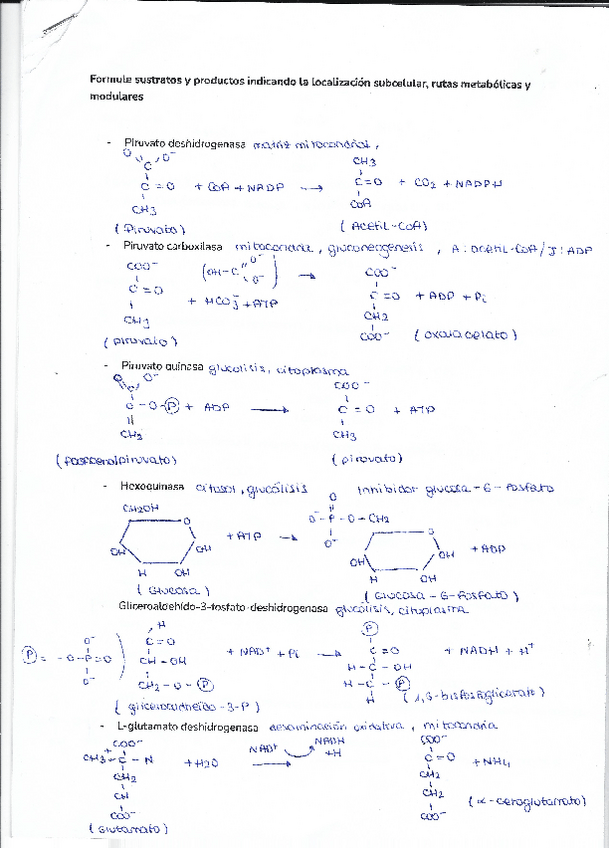 Formule sustratos y productos indicando la localización subcelular, rutas metabólicas y
modulares
- Piruvato deshidrogenasa matriz mitocondrial,
O O⁻ CH3
C
C = O + CoA + NADP → C=O + CO2 + NADPH
CH3 CoA
(Piruvato) (Acetil-CoA)
- Piruvato carboxilasa mitocondria, gluconeogenesis, A: acetil-CoA / I: ADP
COO⁻ (OH-C O⁻ O⁻) → COO⁻
C = O + HCO3⁻ + ATP C = O + ADP + Pi
CH3 CH2
(piruvato) COO⁻ (oxalacetato)
- Piruvato quinasa glucolisis, citoplasma
O O⁻ COO⁻
C - O - P + ADP → C = O + ATP
CH2 CH3
(fosfoenolpiruvato) (piruvato)
- Hexoquinasa citosol, glucólisis Inhibidor glucosa-6-fosfato
CH2OH O
O O⁻ - P - O - CH2
+ ATP → O⁻ O
OH OH OH OH + ADP
H OH H OH
(Glucosa) (Glucosa-6-fosfato)
Gliceroaldehído-3-fosfato-deshidrogenasa glucólisis, citoplasma
O⁻ H P
P = -O-P=O C = O + NAD⁺ + Pi → C = O + NADH + H⁺
O⁻ CH - OH H - C - OH
CH2 - O - P H - C - P
H
(gliceroaldheido-3-P) (1,3-bisfosfoglicerato)
- L-glutamato deshidrogenasa desaminación oxidativa, mitocondria
COO⁻ NAD⁺ NADH COO⁻
CH3 - C - N + H2O +H → C = O + NH4
CH2 CH2
CH CH2
COO⁻ COO⁻ (α-ceroglutarato)
(Glutamato)